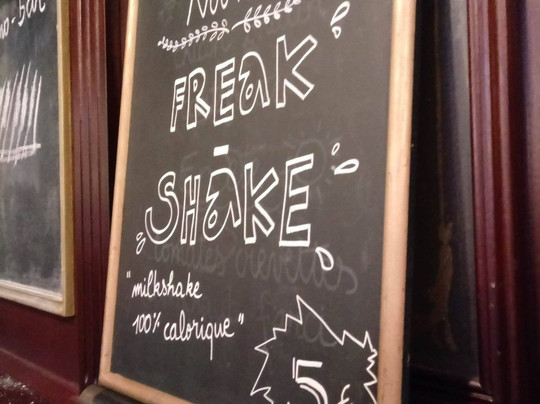 FREAK
-
SHAKE
"milkshake
100% calorique"
5